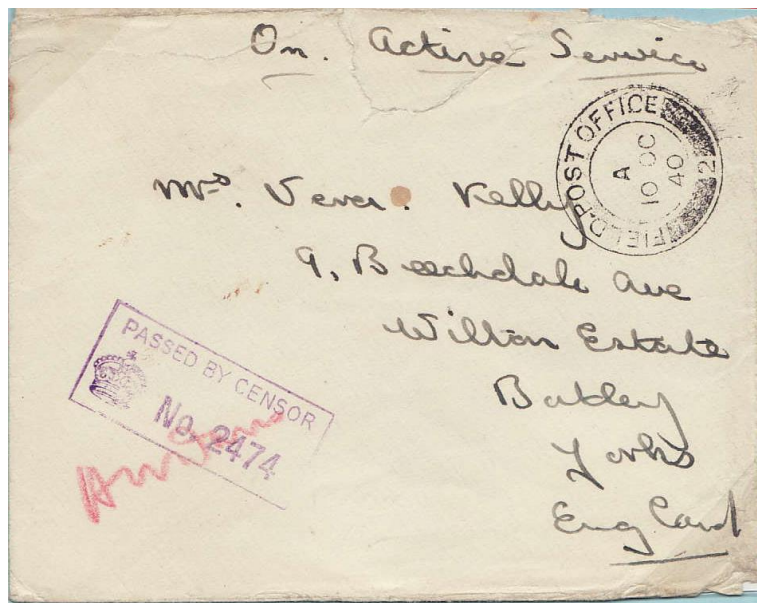 On. Active Service
FIELD POST OFFICE
A
10 OC
40
2
Mrs. Vera. Kelly
9, Beechdale Ave
Wilton Estate
Batley
Yorks
England
PASSED BY CENSOR
No. 2474